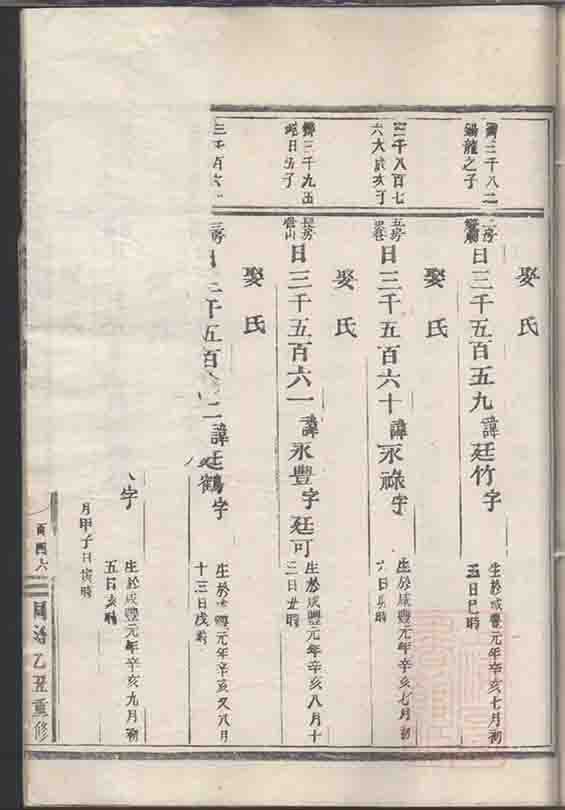 娶氏
齊三千八二
錫龍之子
二房
日三千五百五九諱廷竹字
生於咸豐元年辛亥七月初
五日巳時
娶氏
三千八百七
六大成次子
五房
日三千五百六十諱永祿字
生於咸豐元年辛亥七月初
六日辰時
娶氏
齊三千九五
長房
日三千五百六一諱永豐字廷可
生於咸豐元年辛亥八月十
三日丑時
娶氏
三房
二諱廷鶴字
生於咸豐元年辛亥又八月
十三日戌時
字
生於咸豐元年辛亥九月初
五日亥時
月甲子日寅時
百四六
同治乙丑重修